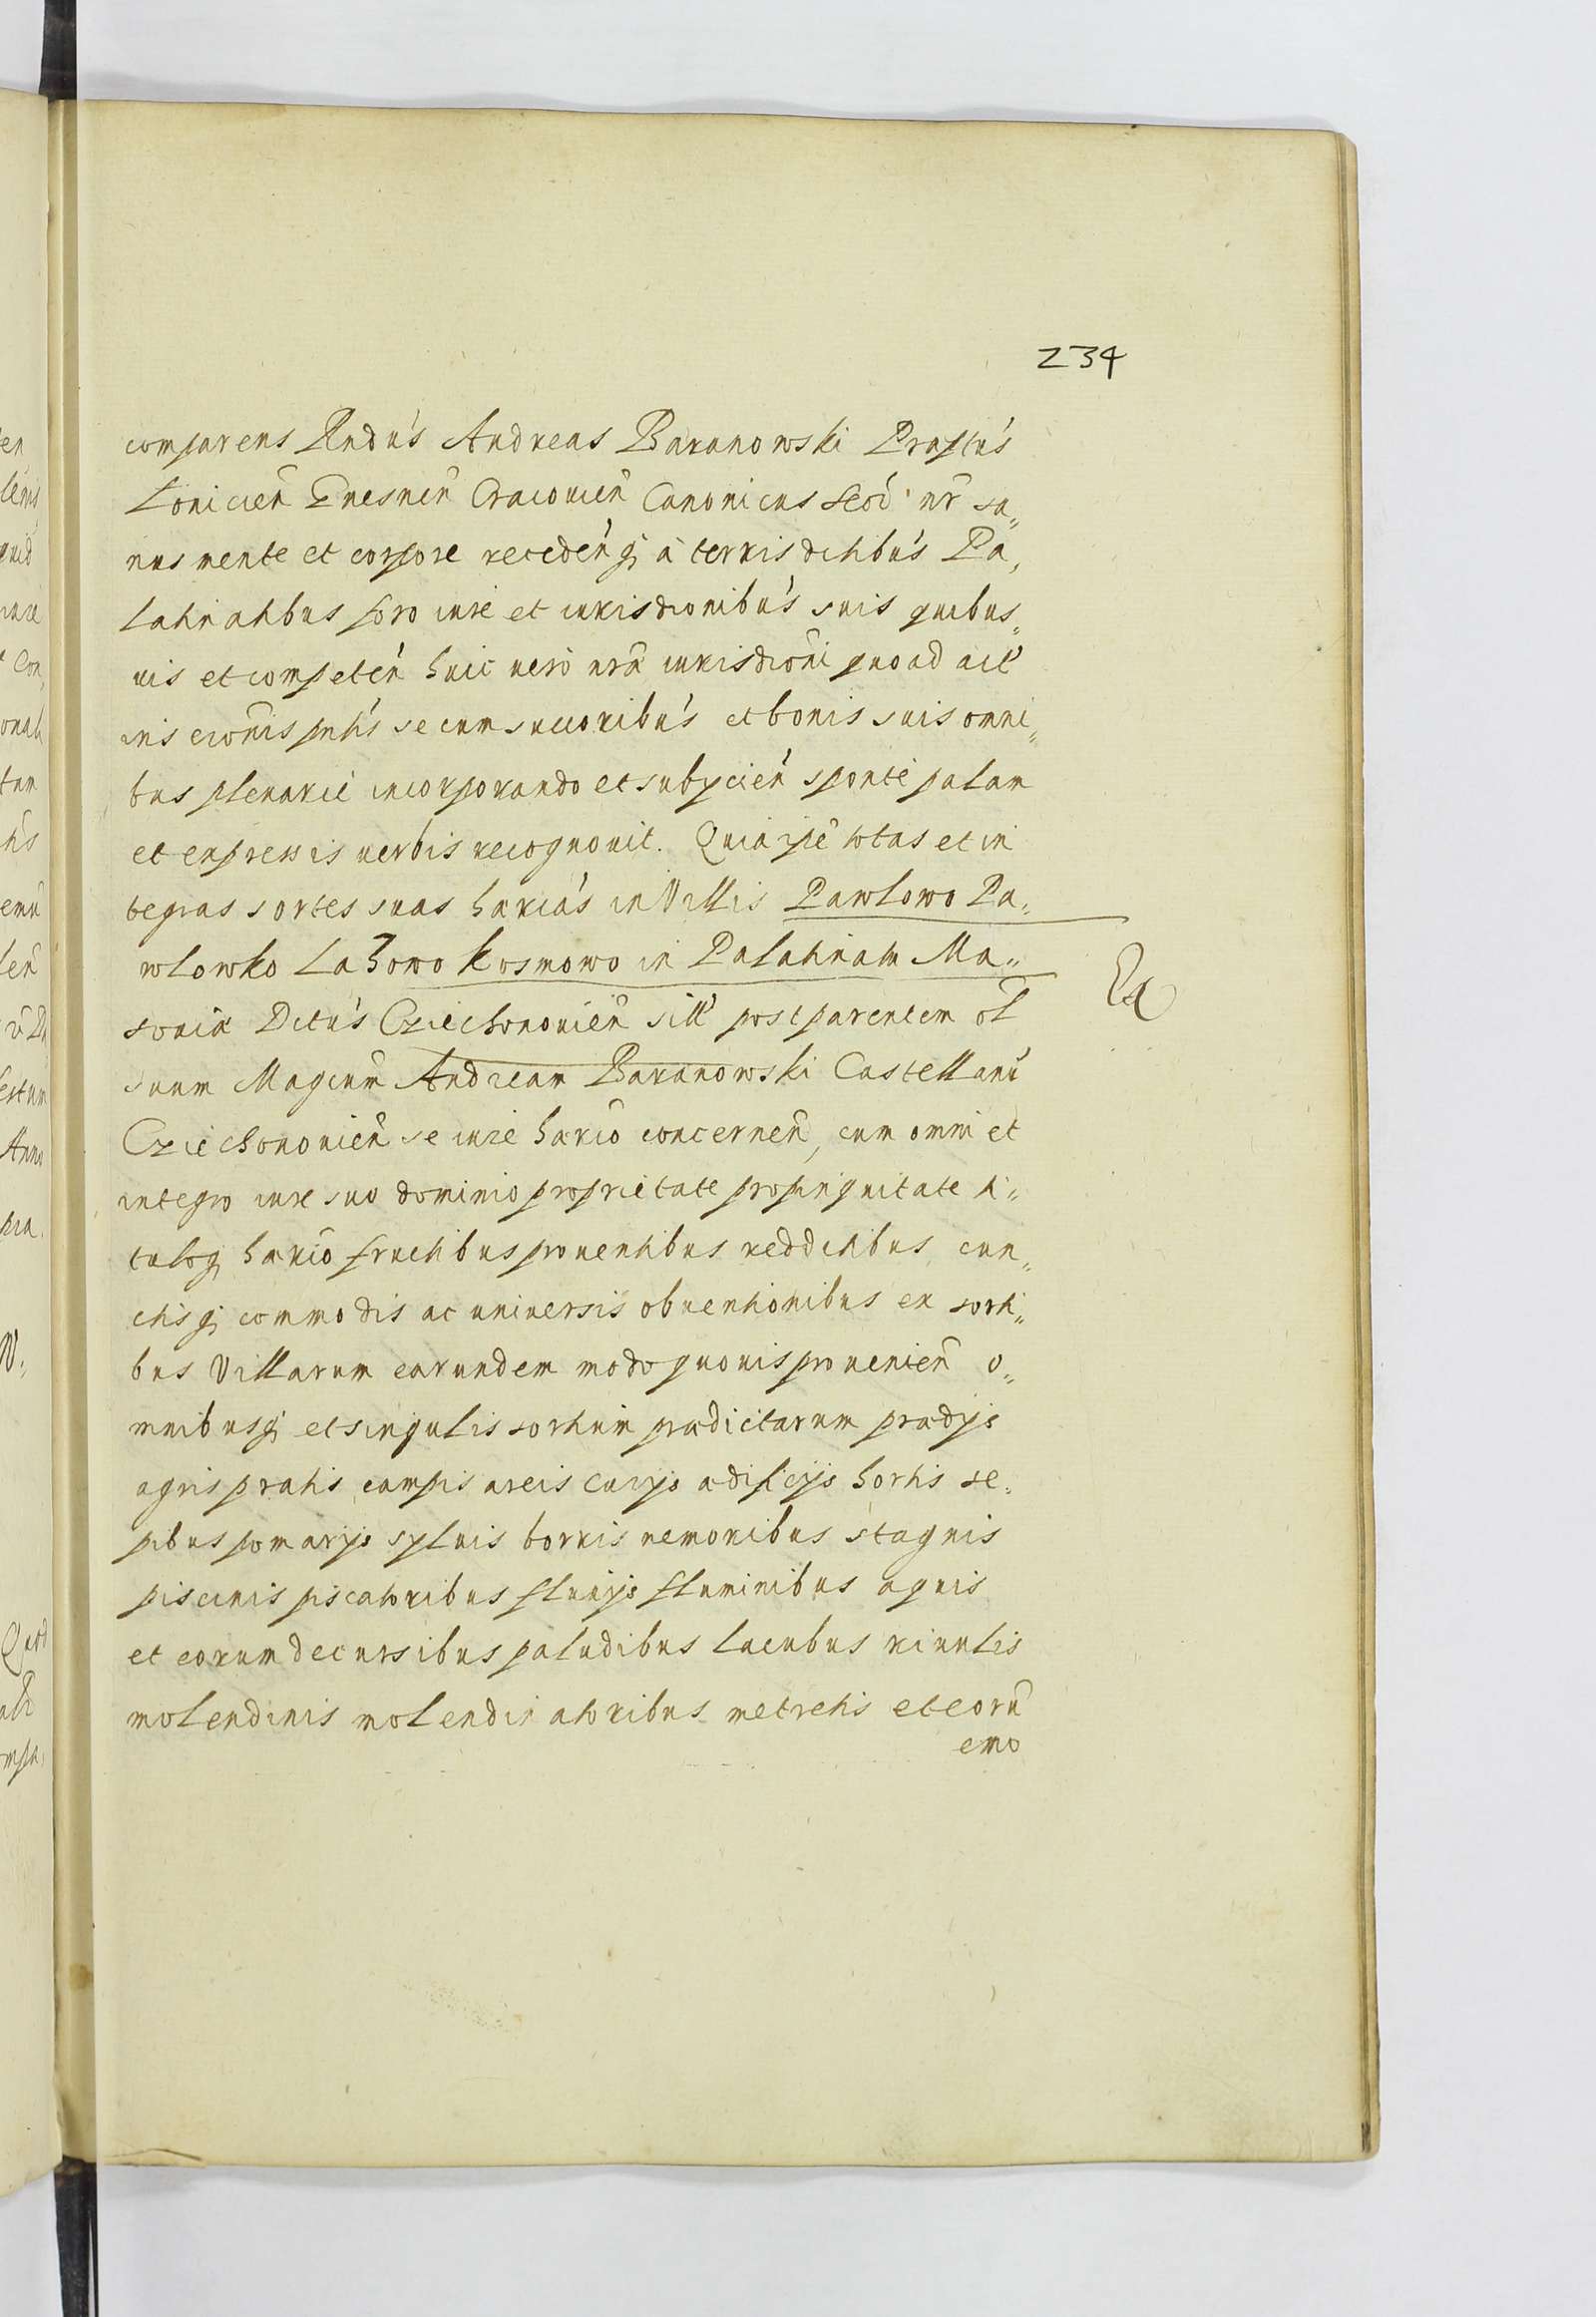 234
comparens Rndus Andreas Baranowski Praptus
Loniciен̃ Gnesneñ Cracovieñ Canonicus Scod nr̃ sa„
nus mente et corpore recedeñq; à terris ditibus Pa„
latinatibus foro iure et iurisdionibus suis quibus„
uis et competeñ huic vero nrã iurisdioñi quoad act'
ins cioñis pntis se cum succoribus et bonis suis omni„
bus plenarie incorporando et subycień sponte palam
et expressis verbis recognouit. Quia ipẽ totas et in
tegras sortes suas harias in Villis Pawlowo Pa„
wlowko Lazowo Kosmowo in Palatinatu Ma„
souia Dctus Cziechonouień sitt' post parentem ol
suum Magcum Andream Baranowski Castellanũ
Cziechonouień se iure hario concerneñ, cum omni et
integro iure suo dominio proprietate propinquitate ti„
tuloq; hario fructibus prouentibus redditibus cun„
ctisq; commodis ac uniuersis obuentionibus ex sorti„
bus Villarum earundem modo quouis prouenień o„
mnibusq; et singulis sortium prædictarum prædijs
agris pratis campis areis curijs ædificijs hortis se„
pibus pomarijs syluis borris nemoribus stagnis
piscinis piscatoribus fluuijs fluminibus aquis
et eorum decursibus paludibus lacubus riuulis
molendinis molendinatoribus metretis et eorũ
emo